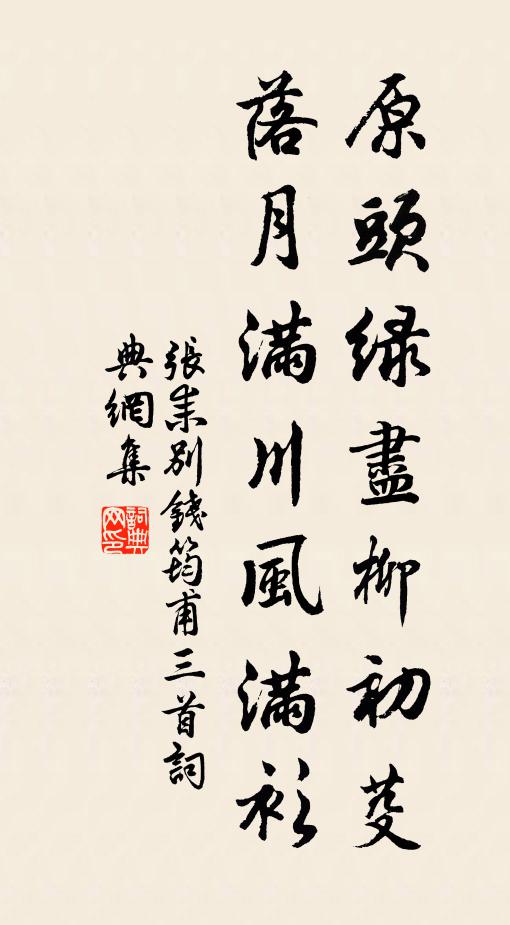 原頭緑盡柳初芟
落月滿川風滿衫
張耒別錢筠甫三首詞
典網集
詞典
网印